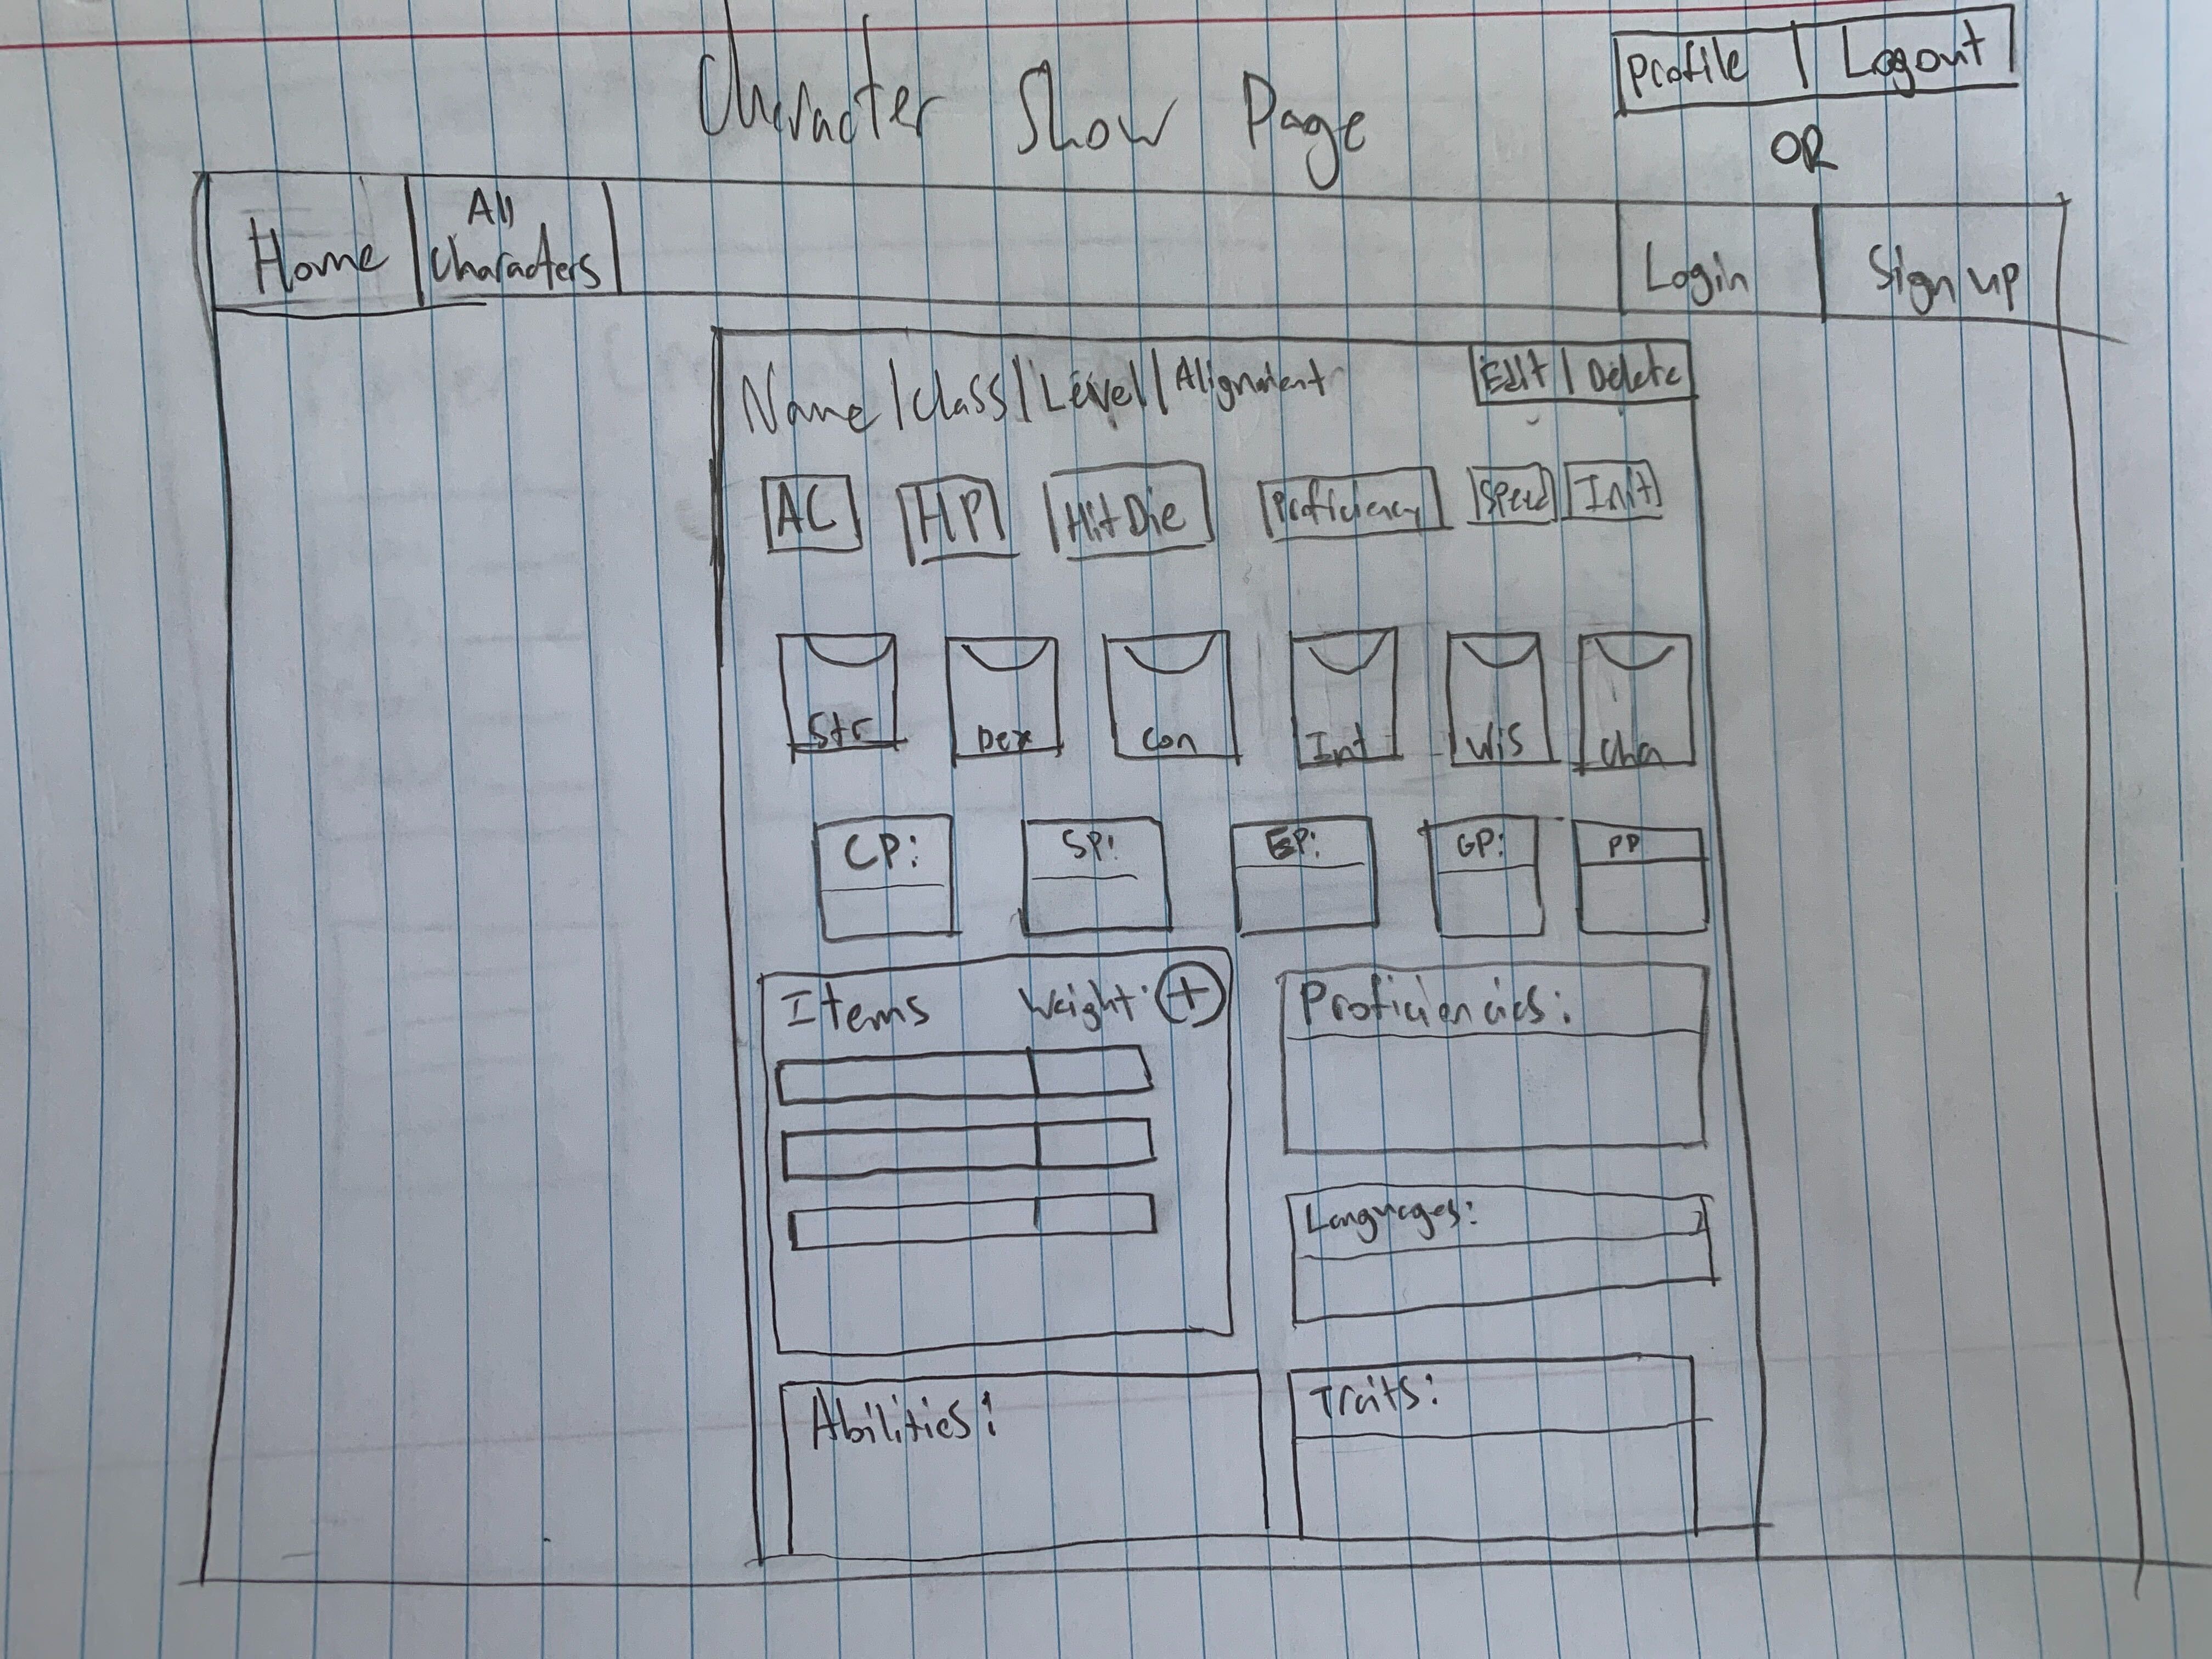 Character Show Page
Profile | Logout
OR
Home
All
Characters
Login
Sign up
Name/class/Level/Alignment
Edit | Delete
AC
HP
Hit Die
Proficiency
Speed
Init
Str
Dex
Con
Int
Wis
Cha
CP:
SP:
EP:
GP:
PP
Items
Weight:
+
Proficiencies:
Languages:
Abilities:
Traits: